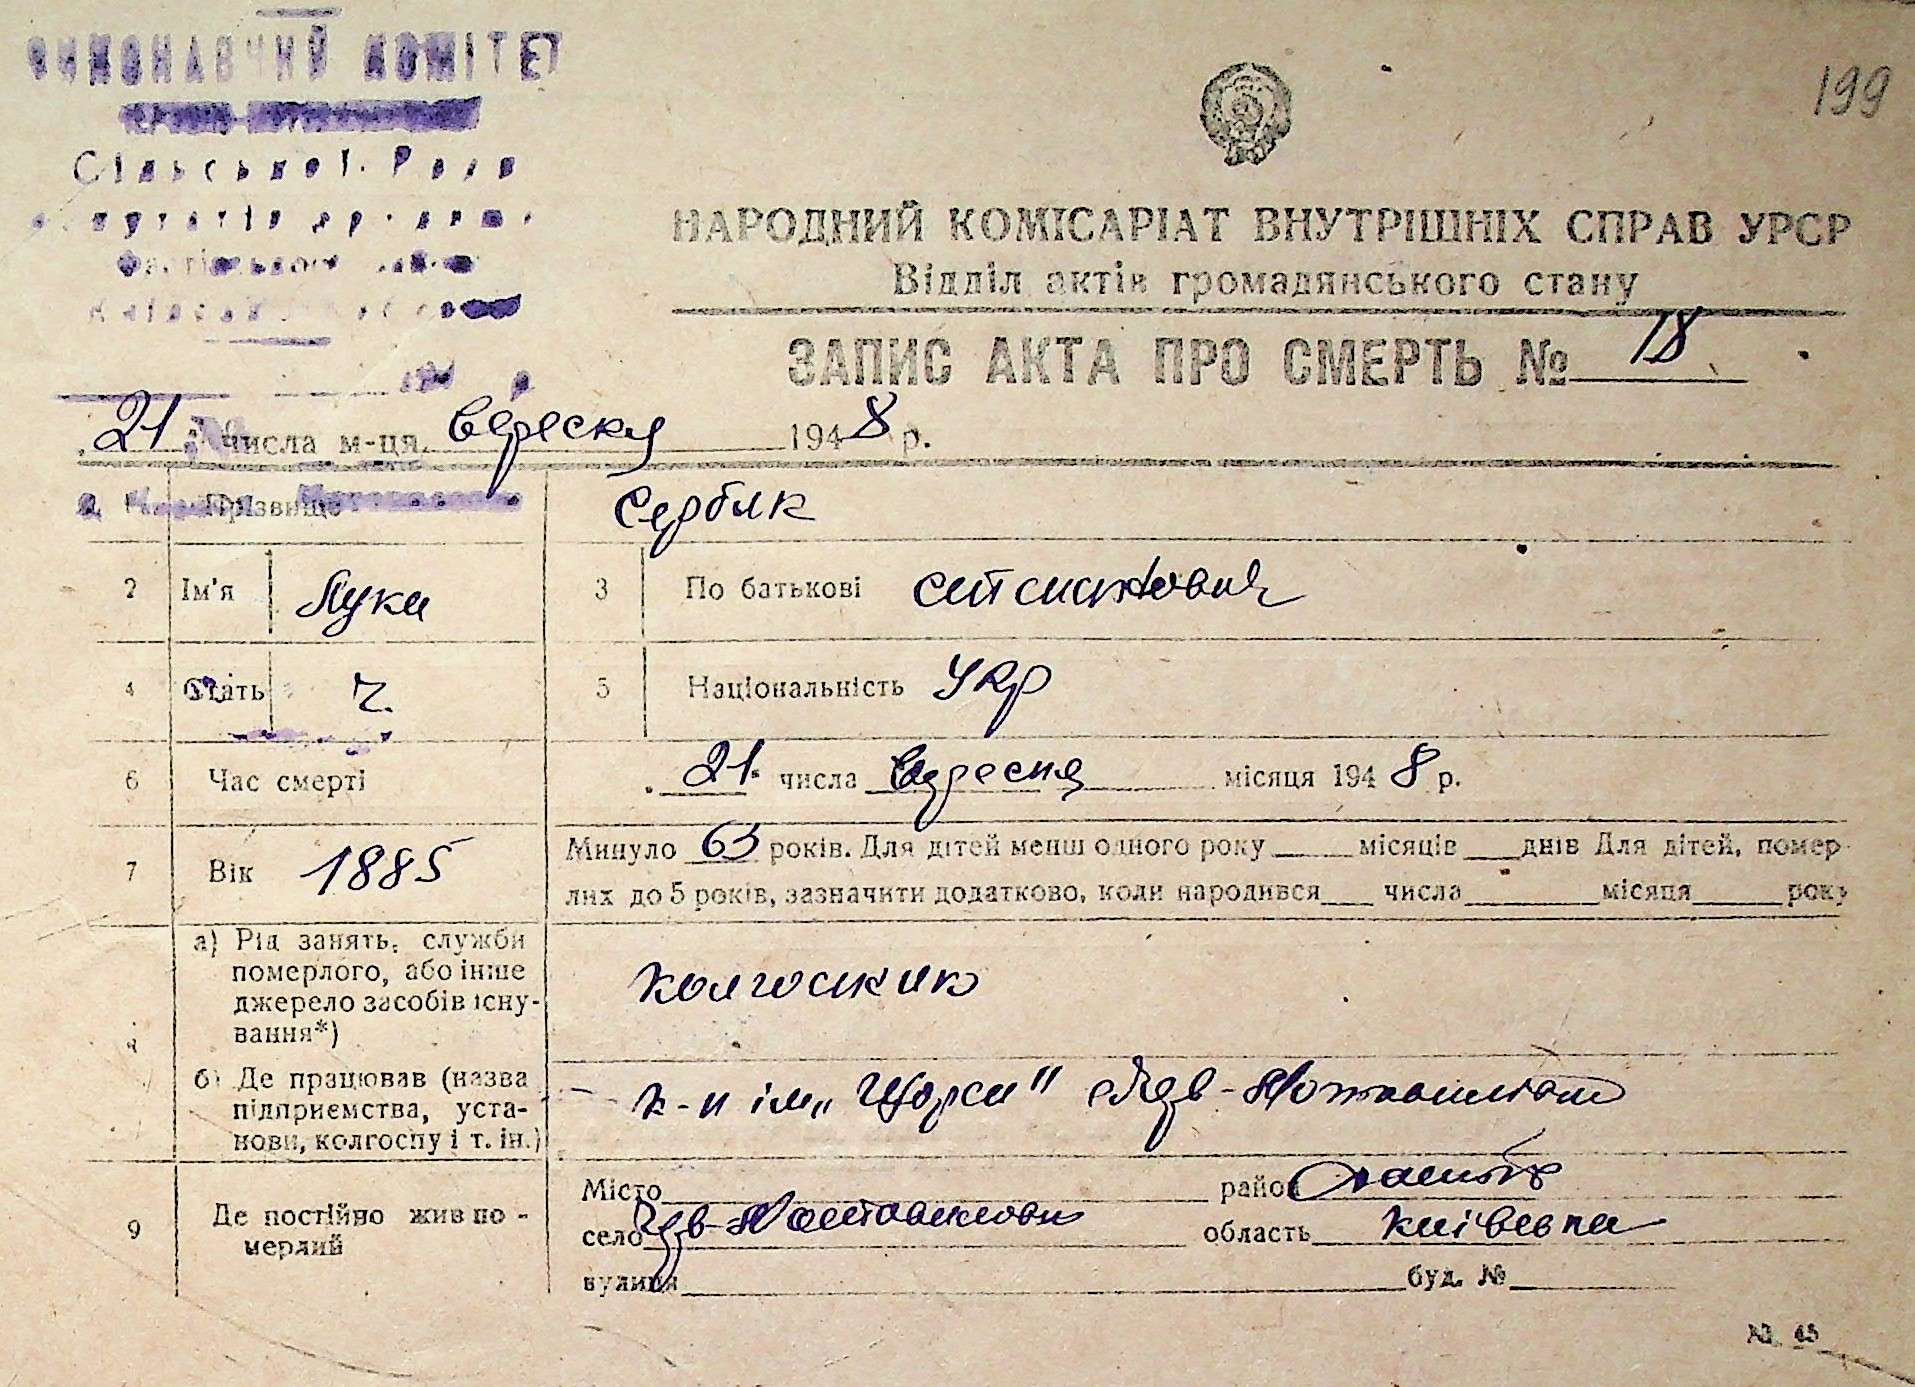 ВИКОНАВЧИЙ КОМІТЕТ
Сільської Ради
199
НАРОДНИЙ КОМІСАРІАТ ВНУТРІШНІХ СПРАВ УРСР
Відділ актів громадянського стану
ЗАПИС АКТА ПРО СМЕРТЬ № 18
21 числа м-ця вересня 1948 р.
Прізвище Сербик
2 Ім'я Лука 3 По батькові
4 Стать ч. 5 Національність Укр
6 Час смерті 21 числа вересня місяця 1948 р.
7 Вік 1885 Минуло 63 років. Для дітей менш одного року місяців днів Для дітей, помер-
лих до 5 років, зазначити додатково, коли народився числа місяця року
8 а) Рід занять, служби
померлого, або інше
джерело засобів існу-
вання*)
колгоспник
б) Де працював (назва
підприємства, уста-
нови, колгоспу і т. ін.)
к-п ім „Щорса"
9 Де постійно жив по-
мерлий
Місто район
село область Київська
вулиця буд. №